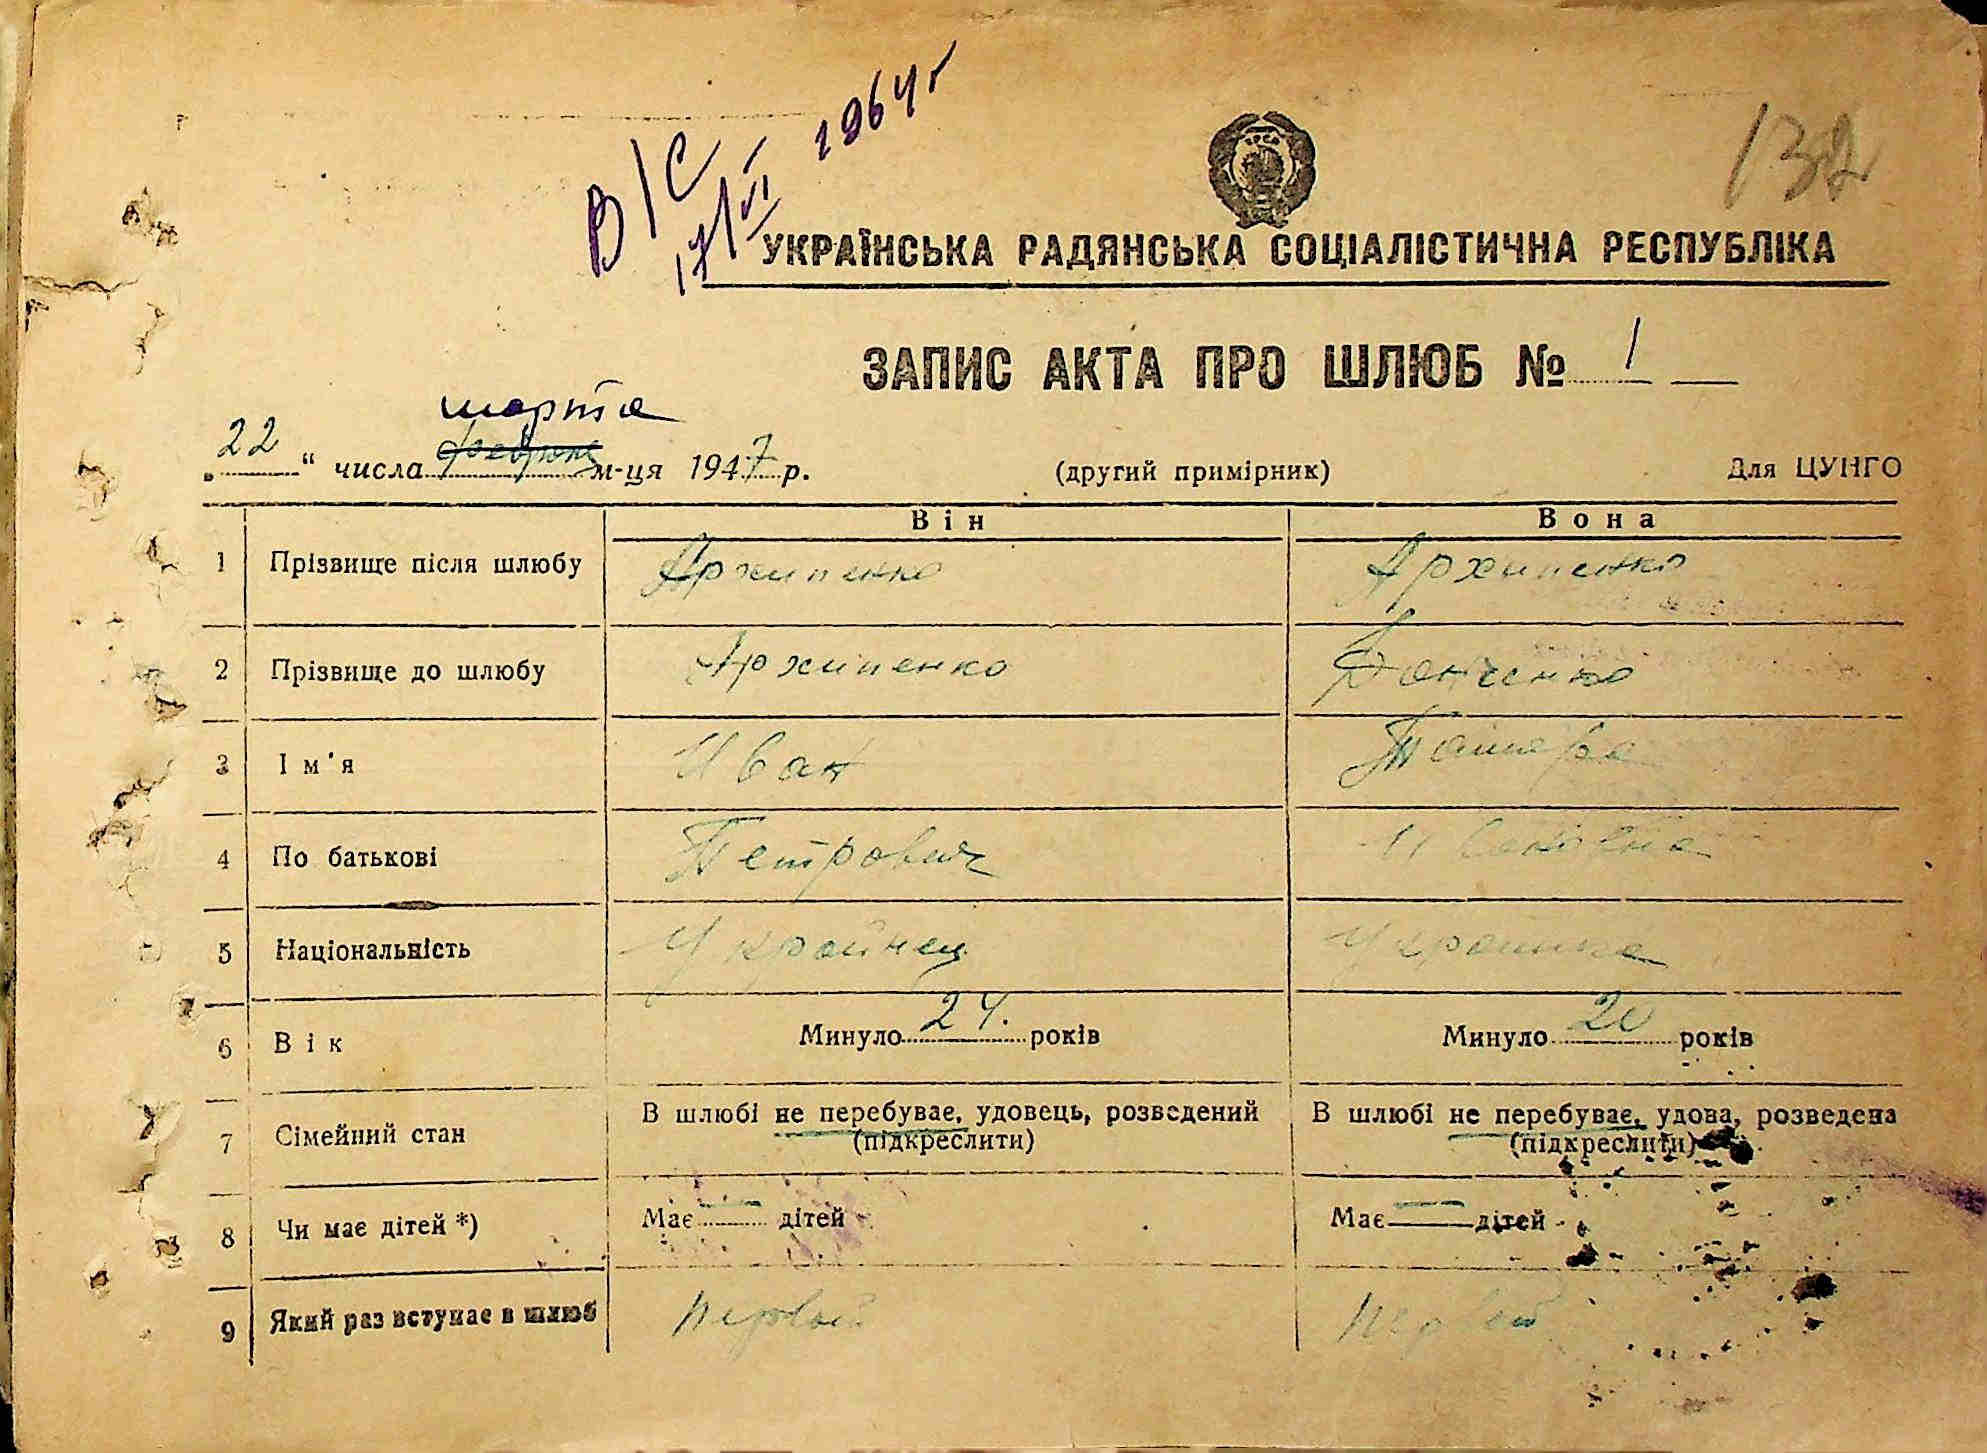 В/С
17/VI 1964 г
132
УКРАЇНСЬКА РАДЯНСЬКА СОЦІАЛІСТИЧНА РЕСПУБЛІКА
ЗАПИС АКТА ПРО ШЛЮБ № 1
марта
„22“ числа февраля м-ця 1947 р. (другий примірник) Для ЦУНГО
Він Вона
1 Прізвище після шлюбу Архипенко Архипенко
2 Прізвище до шлюбу Архипенко
3 Ім'я Иван Тамара
4 По батькові Петрович Ивановна
5 Національність Украйнец Украинка
6 Вік Минуло 24. років Минуло 20 років
7 Сімейний стан В шлюбі не перебуває, удовець, розведений (підкреслити) В шлюбі не перебуває, удова, розведена (підкреслити)
8 Чи має дітей *) Має — дітей Має — дітей
9 Який раз вступає в шлюб первый первый